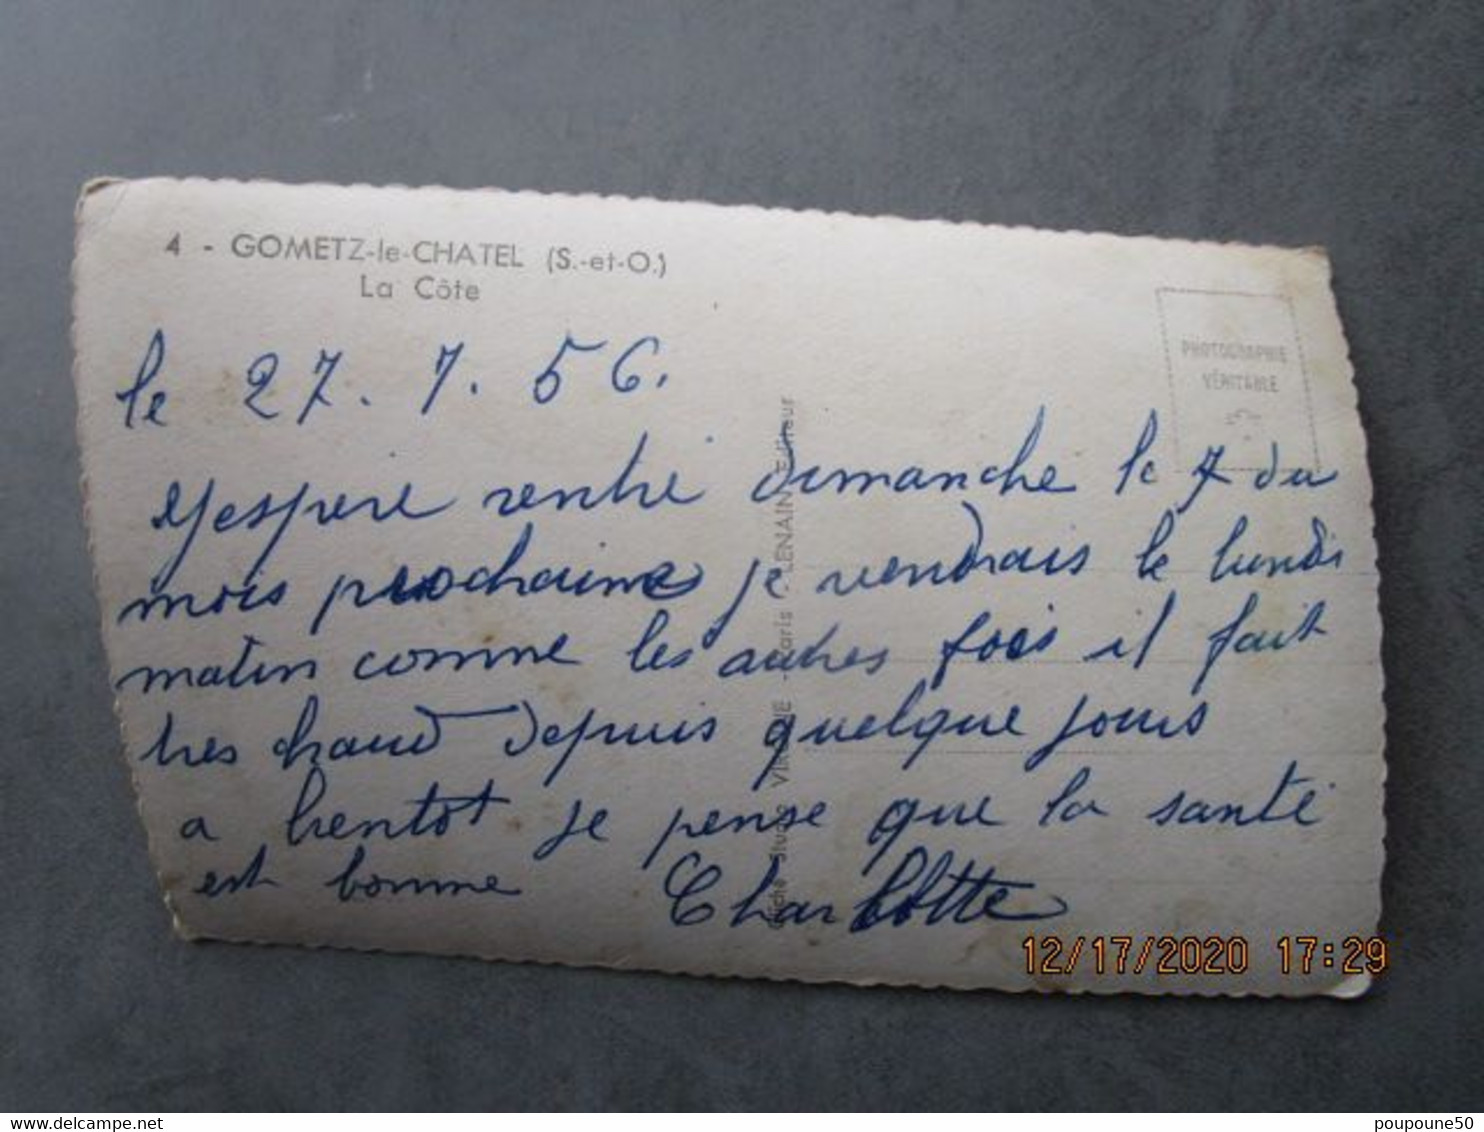 4 - GOMETZ-le-CHATEL (S.-et-O.)
La Côte
PHOTOGRAPHIE
VÉRITABLE
le 27.7.56.
j'espere rentré dimanche le 7 du
mois prochaine je vendrais le lundi
matin comme les autres fois il fait
tres chaud depuis quelque jours
a bientot je pense que la santé
est bonne Charlotte
Cliché Studio - Paris - LENAIN Editeur
12/17/2020 17:29
poupoune50